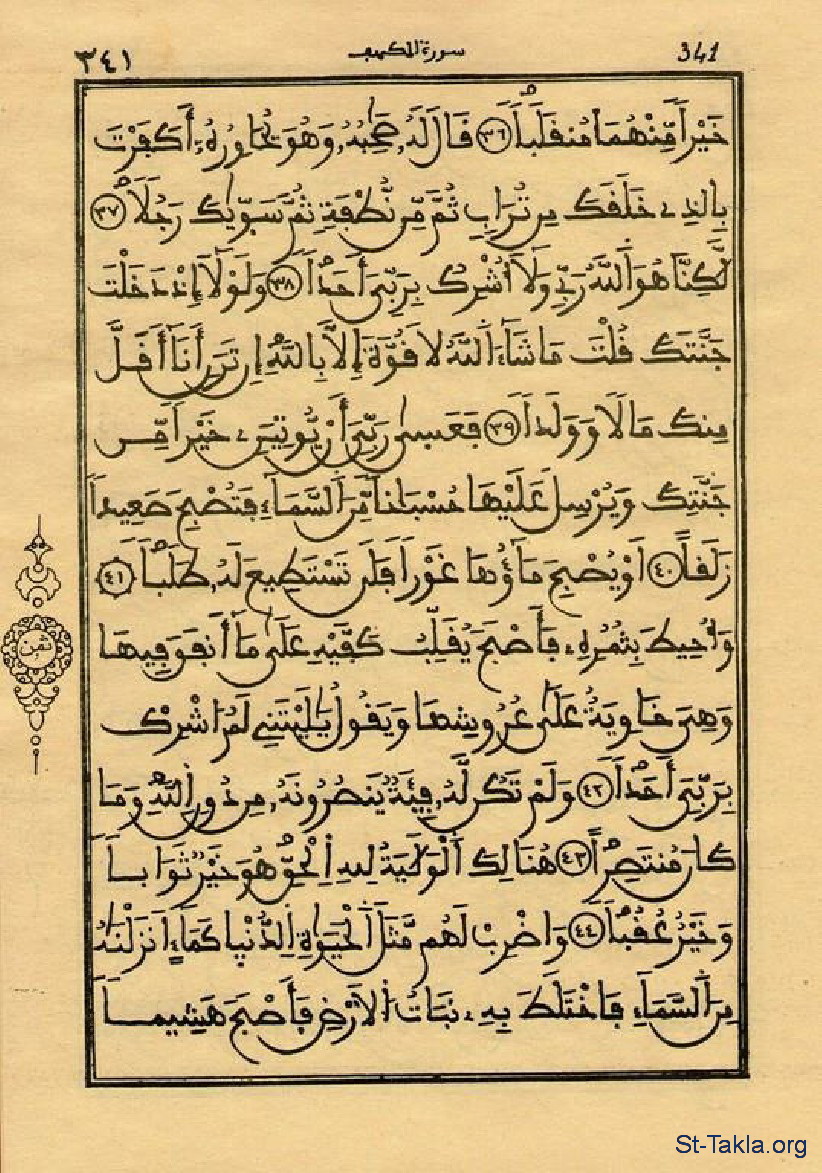 ٣٤١ سورة الكهف 341
خَيْراً مِّنْهُمَا مُنفَلَباً ٣٦ فَالَ لَهُۥ صَٰحِبُهُۥ وَهُوَ يُحَاوِرُهُۥٓ أَكَفَرْتَ
بِالذِے خَلَفَكَ مِن تُرَابٍ ثُمَّ مِن نُّطْفَةٍ ثُمَّ سَوّ۪يٰكَ رَجُلًا ٣٧
لَّٰكِنَّا هُوَ اَ۬للَّهُ رَبِّے وَلَآ أُشْرِكُ بِرَبِّيَ أَحَداً ٣٨ وَلَوْلَآ إِذْ دَخَلْتَ
جَنَّتَكَ فُلْتَ مَا شَآءَ اَ۬للَّهُ لَا فُوَّةَ إِلَّا بِاللَّهِ إِن تَرَنِ أَنَآ أَفَلَّ
مِنكَ مَالًا وَوَلَداً ٣٩ فَعَسٰى رَبِّيَ أَنْ يُّوتِيَنِۦ خَيْراً مِّن
جَنَّتِكَ وَيُرْسِلَ عَلَيْهَا حُسْبَاناً مِّنَ اَ۬لسَّمَآءِ فَتُصْبِحَ صَعِيداً
زَلَفاً ٤٠ اَوْ يُصْبِحَ مَآؤُهَا غَوْراً فَلَن تَسْتَطِيعَ لَهُۥ طَلَباً ٤١
وَأُحِيطَ بِثُمُرِهِۦ فَأَصْبَحَ يُفَلِّبُ كَفَّيْهِ عَلَىٰ مَآ أَنفَقَ فِيهَا
وَهِيَ خَاوِيَةٌ عَلَىٰ عُرُوشِهَا وَيَفُولُ يَٰلَيْتَنِے لَمُ ا۟شْرِكْ
بِرَبِّيَ أَحَداً ٤٢ وَلَمْ تَكُن لَّهُۥ فِئَةٌ يَنصُرُونَهُۥ مِن دُونِ اِ۬للَّهِ وَمَا
كَانَ مُنتَصِراً ٤٣ هُنَالِكَ اَ۬لْوَلَٰيَةُ لِلهِ اِ۬لْحَقِّ هُوَ خَيْرٌ ثَوَاباً
وَخَيْرٌ عُفُباً ٤٤ وَاضْرِبْ لَهُم مَّثَلَ اَ۬لْحَيَوٰةِ اِ۬لدُّنْيا كَمَآءٍ اَنزَلْنَٰهُ
مِنَ اَ۬لسَّمَآءِ فَاخْتَلَطَ بِهِۦ نَبَاتُ اُ۬لَارْضِ فَأَصْبَحَ هَشِيماً
ثمن
St-Takla.org